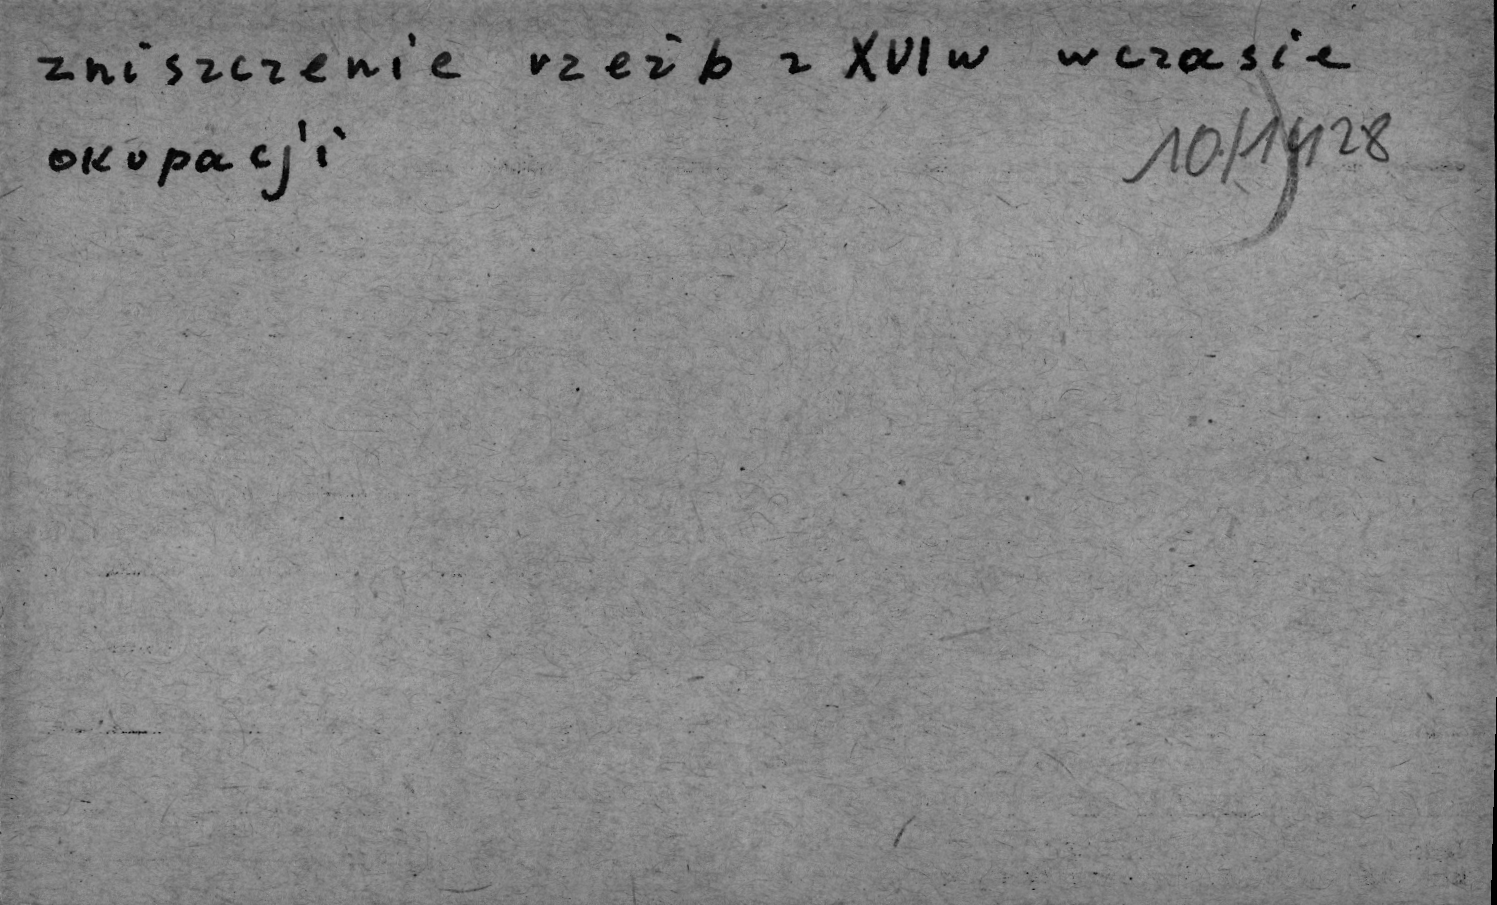 zniszczenie rzeźb z XVI w wczasie
okupacji